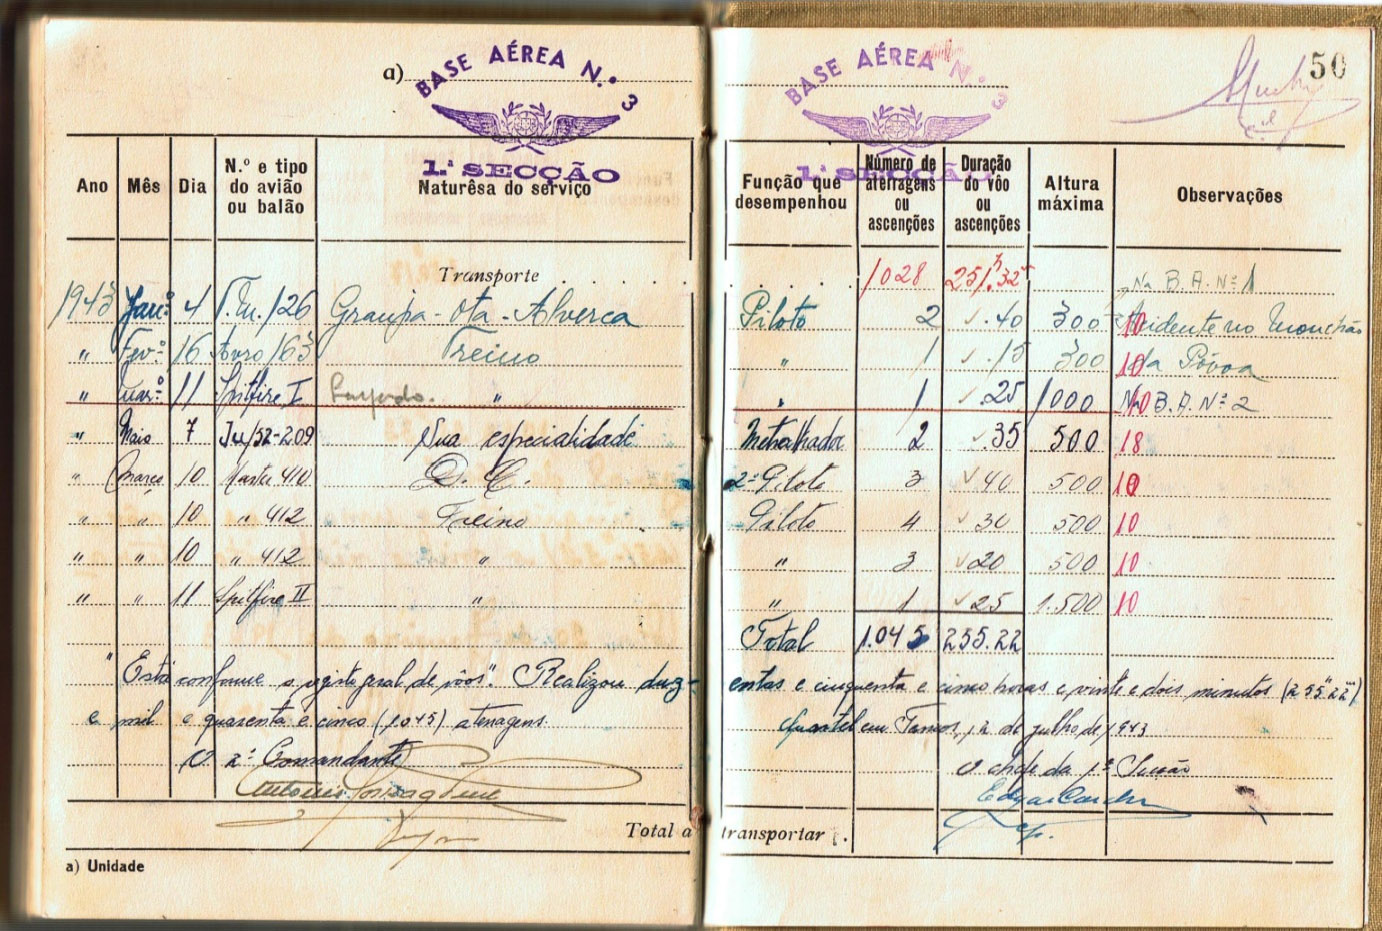 a) BASE AÉREA N.º 3
1.ª SECÇÃO
BASE AÉREA N.º 3
1.ª SECÇÃO
50
Ano Mês Dia N.º e tipo do avião ou balão Naturêsa do serviço Função que desempenhou Número de aterragens ou ascenções Duração do vôo ou ascenções Altura máxima Observações
Transporte 1028 251.h32m Na B.A. Nº 1
1943 Janº 4 /26 Granja-Ota-Alverca Piloto 2 .40 300 10 Acidente no Mouchão
" Fevº 16 Avro/163 Treino " 1 .15 300 10 da Póvoa
" Marº 11 Spitfire I " " 1 .25 1000 10 Na B.A. Nº 2
" Maio 7 Ju/52-209 Sua especialidade Metralhador 2 .35 500 18
" Março 10 Master 410 D. C. 2º Piloto 3 40 500 10
" " 10 " 412 Treino Piloto 4 30 500 10
" " 10 " 412 " " 3 20 500 10
" " 11 Spitfire II " " 1 25 1.500 10
Total 1.045 255.22
"Está conforme o registo geral de vôos". Realizou duz- entas e cinquenta e cinco horas e vinte e dois minutos (255h22m)
e mil e quarenta e cinco (1.045) aterragens. Quartel em Tancos, 12 de julho de 1943
O 2º Comandante O chefe da 1ª Secção
Total a transportar .
a) Unidade